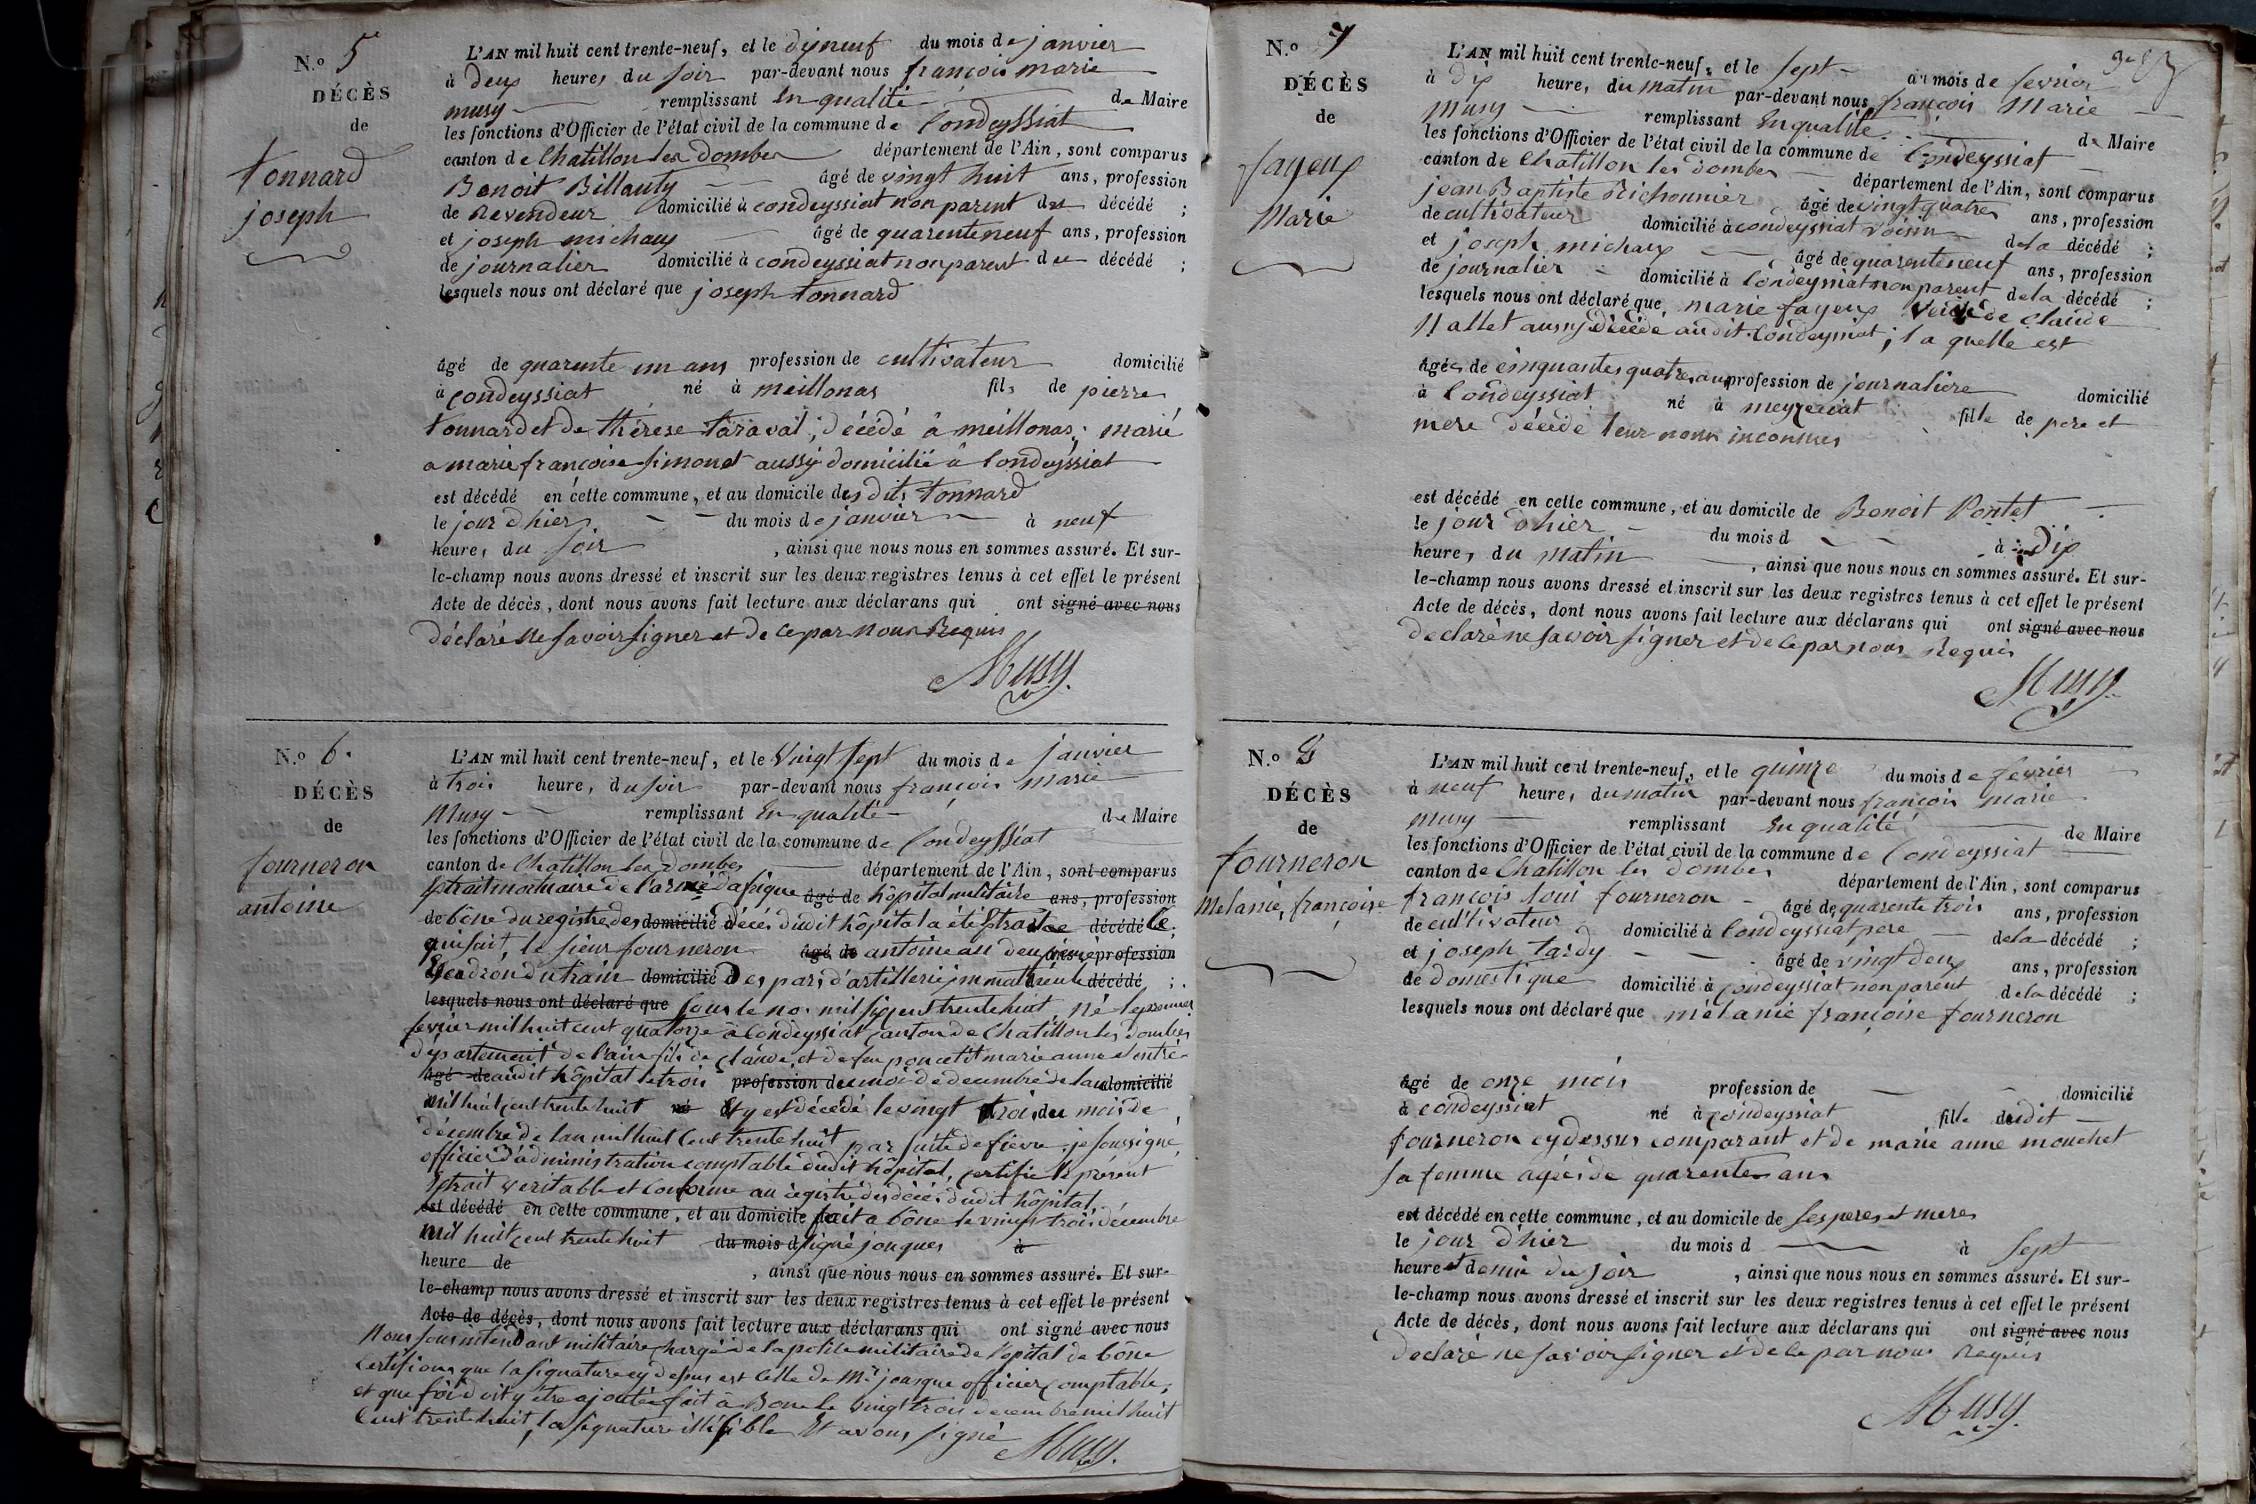 N.o 5
DÉCÈS
de
tonnard
joseph
L'AN mil huit cent trente-neuf, et le dixneuf du mois de janvier
à deux heures du soir par-devant nous françois marie
musy remplissant En qualité de Maire
les fonctions d'Officier de l'état civil de la commune de Condeyssiat
canton de Chatillon les dombes département de l'Ain, sont comparus
Benoit Billauty âgé de vingt huit ans, profession
de Revendeur domicilié à condeyssiat non parent du décédé ;
et joseph michaux âgé de quarente neuf ans, profession
de journalier domicilié à condeyssiat non parent du décédé ;
lesquels nous ont déclaré que joseph tonnard
âgé de quarente un ans profession de cultivateur domicilié
à condeyssiat né à meillonas fils de pierre
tonnard et de thérese taraval ; décédé à meillonas ; marié
a marie françoise simonet aussy domicilié à Condeyssiat
est décédé en cette commune, et au domicile des dits tonnard
le jour d'hier du mois de janvier à neuf
heures du soir , ainsi que nous nous en sommes assuré. Et sur-
le-champ nous avons dressé et inscrit sur les deux registres tenus à cet effet le présent
Acte de décès, dont nous avons fait lecture aux déclarans qui ont signé avec nous
déclaré ne savoir signer et de ce par nous Requis
Musy
N.o 6.
DÉCÈS
de
fourneron
antoine
L'AN mil huit cent trente-neuf, et le Vingt sept du mois de janvier
à trois heure, du soir par-devant nous françois marie
Musy remplissant En qualité de Maire
les fonctions d'Officier de l'état civil de la commune de Condeyssiat
canton de Chatillon les dombes département de l'Ain, sont comparus
Extrait mortuaire de l'armé d'afrique âgé de hôpital militaire ans, profession
de bône du registre des domicilié décés dudit hôpital a été Extrait ce décédé ce ;
qui suit, le sieur fourneron âgé de antoine au deuxième profession
Escadron du train domicilié Des parcs d'artillerie immatriculé décédé ;
lesquels nous ont déclaré que sous le no. mil six cent trente huit, né le premier
fevrier mil huit cent quatorze à Condeyssiat canton de Chatillon les dombes
département de l'ain fils de claude, et de feu poncetit marie anne Entré
âgé de audit hôpital le trois profession de du mois de decembre de l'an domicilié
mil huit cent trente huit né Et y est décédé le vingt trois du mois de
décembre de l'an mil huit Cent trente huit par suite de fièvre. je soussigné,
officier d'administration comptable dudit hôpital, certifie le présent
Extrait veritable et Conforme au registre des décés dudit hôpital.
est décédé en cette commune, et au domicile fait a bône le vingt trois décembre
mil huit cent trente huit du mois d signé jonques à
heure de , ainsi que nous nous en sommes assuré. Et sur-
le-champ nous avons dressé et inscrit sur les deux registres tenus à cet effet le présent
Acte de décès, dont nous avons fait lecture aux déclarans qui ont signé avec nous
Nous sousintendant militaire chargé de la police militaire de l'opital de bône
Certifions que la signature cy dessus est Celle de Mr jonsque officier comptable,
et que foi doit y être ajoutée fait à Bone le vingt trois decembre mil huit
Cent trente huit, la signature illisible Et avons signé Musy.
N.o 7
DÉCÈS
de
fayeux
Marie
L'AN mil huit cent trente-neuf, et le sept du mois de fevrier
à dix heure, du matin par-devant nous françois Marie
Musy remplissant En qualité de Maire
les fonctions d'Officier de l'état civil de la commune de Condeyssiat
canton de Chatillon les dombes département de l'Ain, sont comparus
jean Baptiste Richonnier âgé de vingt quatre ans, profession
de cultivateur domicilié à condeyssiat voisin de la décédé ;
et joseph michaux âgé de quarente neuf ans, profession
de journalier domicilié à Condeyssiat non parent de la décédé ;
lesquels nous ont déclaré que marie fayeux veuve de Claude
Hallet aussy décédé audit Condeyssiat ; la quelle est
âgée de cinquantes quatre ans profession de journaliere domicilié
à Condeyssiat né à meyzeriat fille de pere et
mere décédé leur noms inconnus
est décédé en cette commune, et au domicile de Benoit Pontet
le jour d'hier du mois d à dix
heure, du matin , ainsi que nous nous en sommes assuré. Et sur-
le-champ nous avons dressé et inscrit sur les deux registres tenus à cet effet le présent
Acte de décès, dont nous avons fait lecture aux déclarans qui ont signé avec nous
declaré ne savoir signer et de ce par nous Requis
Musy
N.o 8
DÉCÈS
de
fourneron
Melanie, françoise
L'AN mil huit cent trente-neuf, et le quinze du mois de fevrier
à neuf heure, du matin par-devant nous françois marie
musy remplissant En qualité de Maire
les fonctions d'Officier de l'état civil de la commune de Condeyssiat
canton de Chatillon les dombes département de l'Ain, sont comparus
françois loui fourneron âgé de quarente trois ans, profession
de cultivateur domicilié à Condeyssiat pere de la décédé ;
et joseph tardy âgé de vingt deux ans, profession
de domestique domicilié à condeyssiat non parent de la décédé ;
lesquels nous ont déclaré que mélanie françoise fourneron
âgé de onze mois profession de domicilié
à condeyssiat né à condeyssiat fille dudit
fourneron cy dessus comparant et de marie anne mouchet
sa femme agée de quarentes ans
est décédé en cette commune, et au domicile de ses peres et meres
le jour d'hier du mois d à sept
heure et demie du soir , ainsi que nous nous en sommes assuré. Et sur-
le-champ nous avons dressé et inscrit sur les deux registres tenus à cet effet le présent
Acte de décès, dont nous avons fait lecture aux déclarans qui ont signé avec nous
declaré ne savoir signer et de ce par nous Requis
Musy.